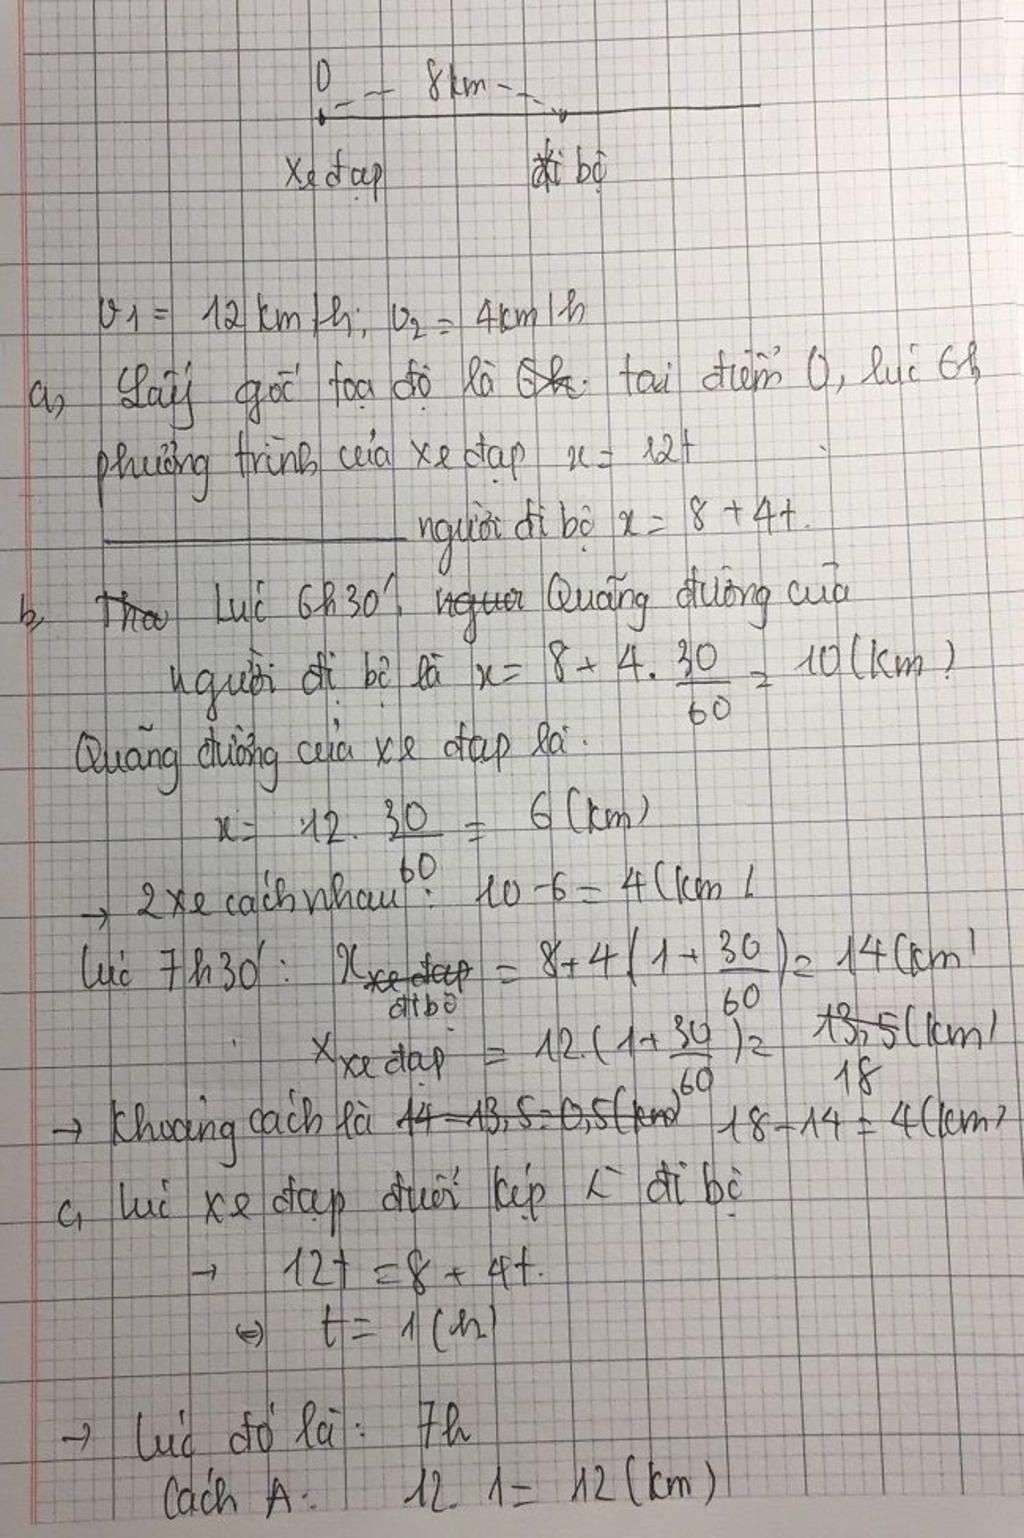 O
8km
xe đạp đi bộ
v1 = 12km/h; v2 = 4km/h
a, Lấy gốc tọa độ là tại điểm O, lúc 6h
phương trình của xe đạp x = 12t
người đi bộ x = 8 + 4t.
b, Lúc 6h30', Quãng đường của
người đi bộ là x = 8 + 4. 30/60 = 10(km)
Quãng đường của xe đạp là:
x = 12. 30/60 = 6(km)
→ 2 xe cách nhau: 10-6 = 4(km)
lúc 7h30': x đi bộ = 8+4(1+30/60) = 14(km)
x xe đạp = 12.(1+30/60) = 18 (km)
→ khoảng cách là 18-14 = 4(km)
c, lúc xe đạp đuổi kịp đi bộ
→ 12t = 8 + 4t.
⇔ t = 1(h)
→ lúc đó là: 7h
Cách A: 12. 1 = 12(km)